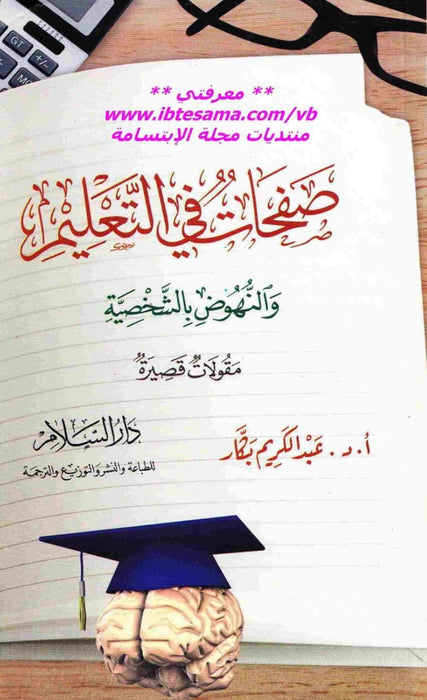 ** معرفتي **
www.ibtesama.com/vb
منتديات مجلة الإبتسامة
صَفَحَاتٌ فِي التَّعْلِيمِ
وَالنُّهُوضِ بِالشَّخْصِيَّةِ
مَقُولَاتٌ قَصِيرَةٌ
أ.د. عَبْد الكَرِيم بَكَّار
دَارُ السَّلَامِ
للطباعة والنشر والتوزيع والترجمة
GT
+/-